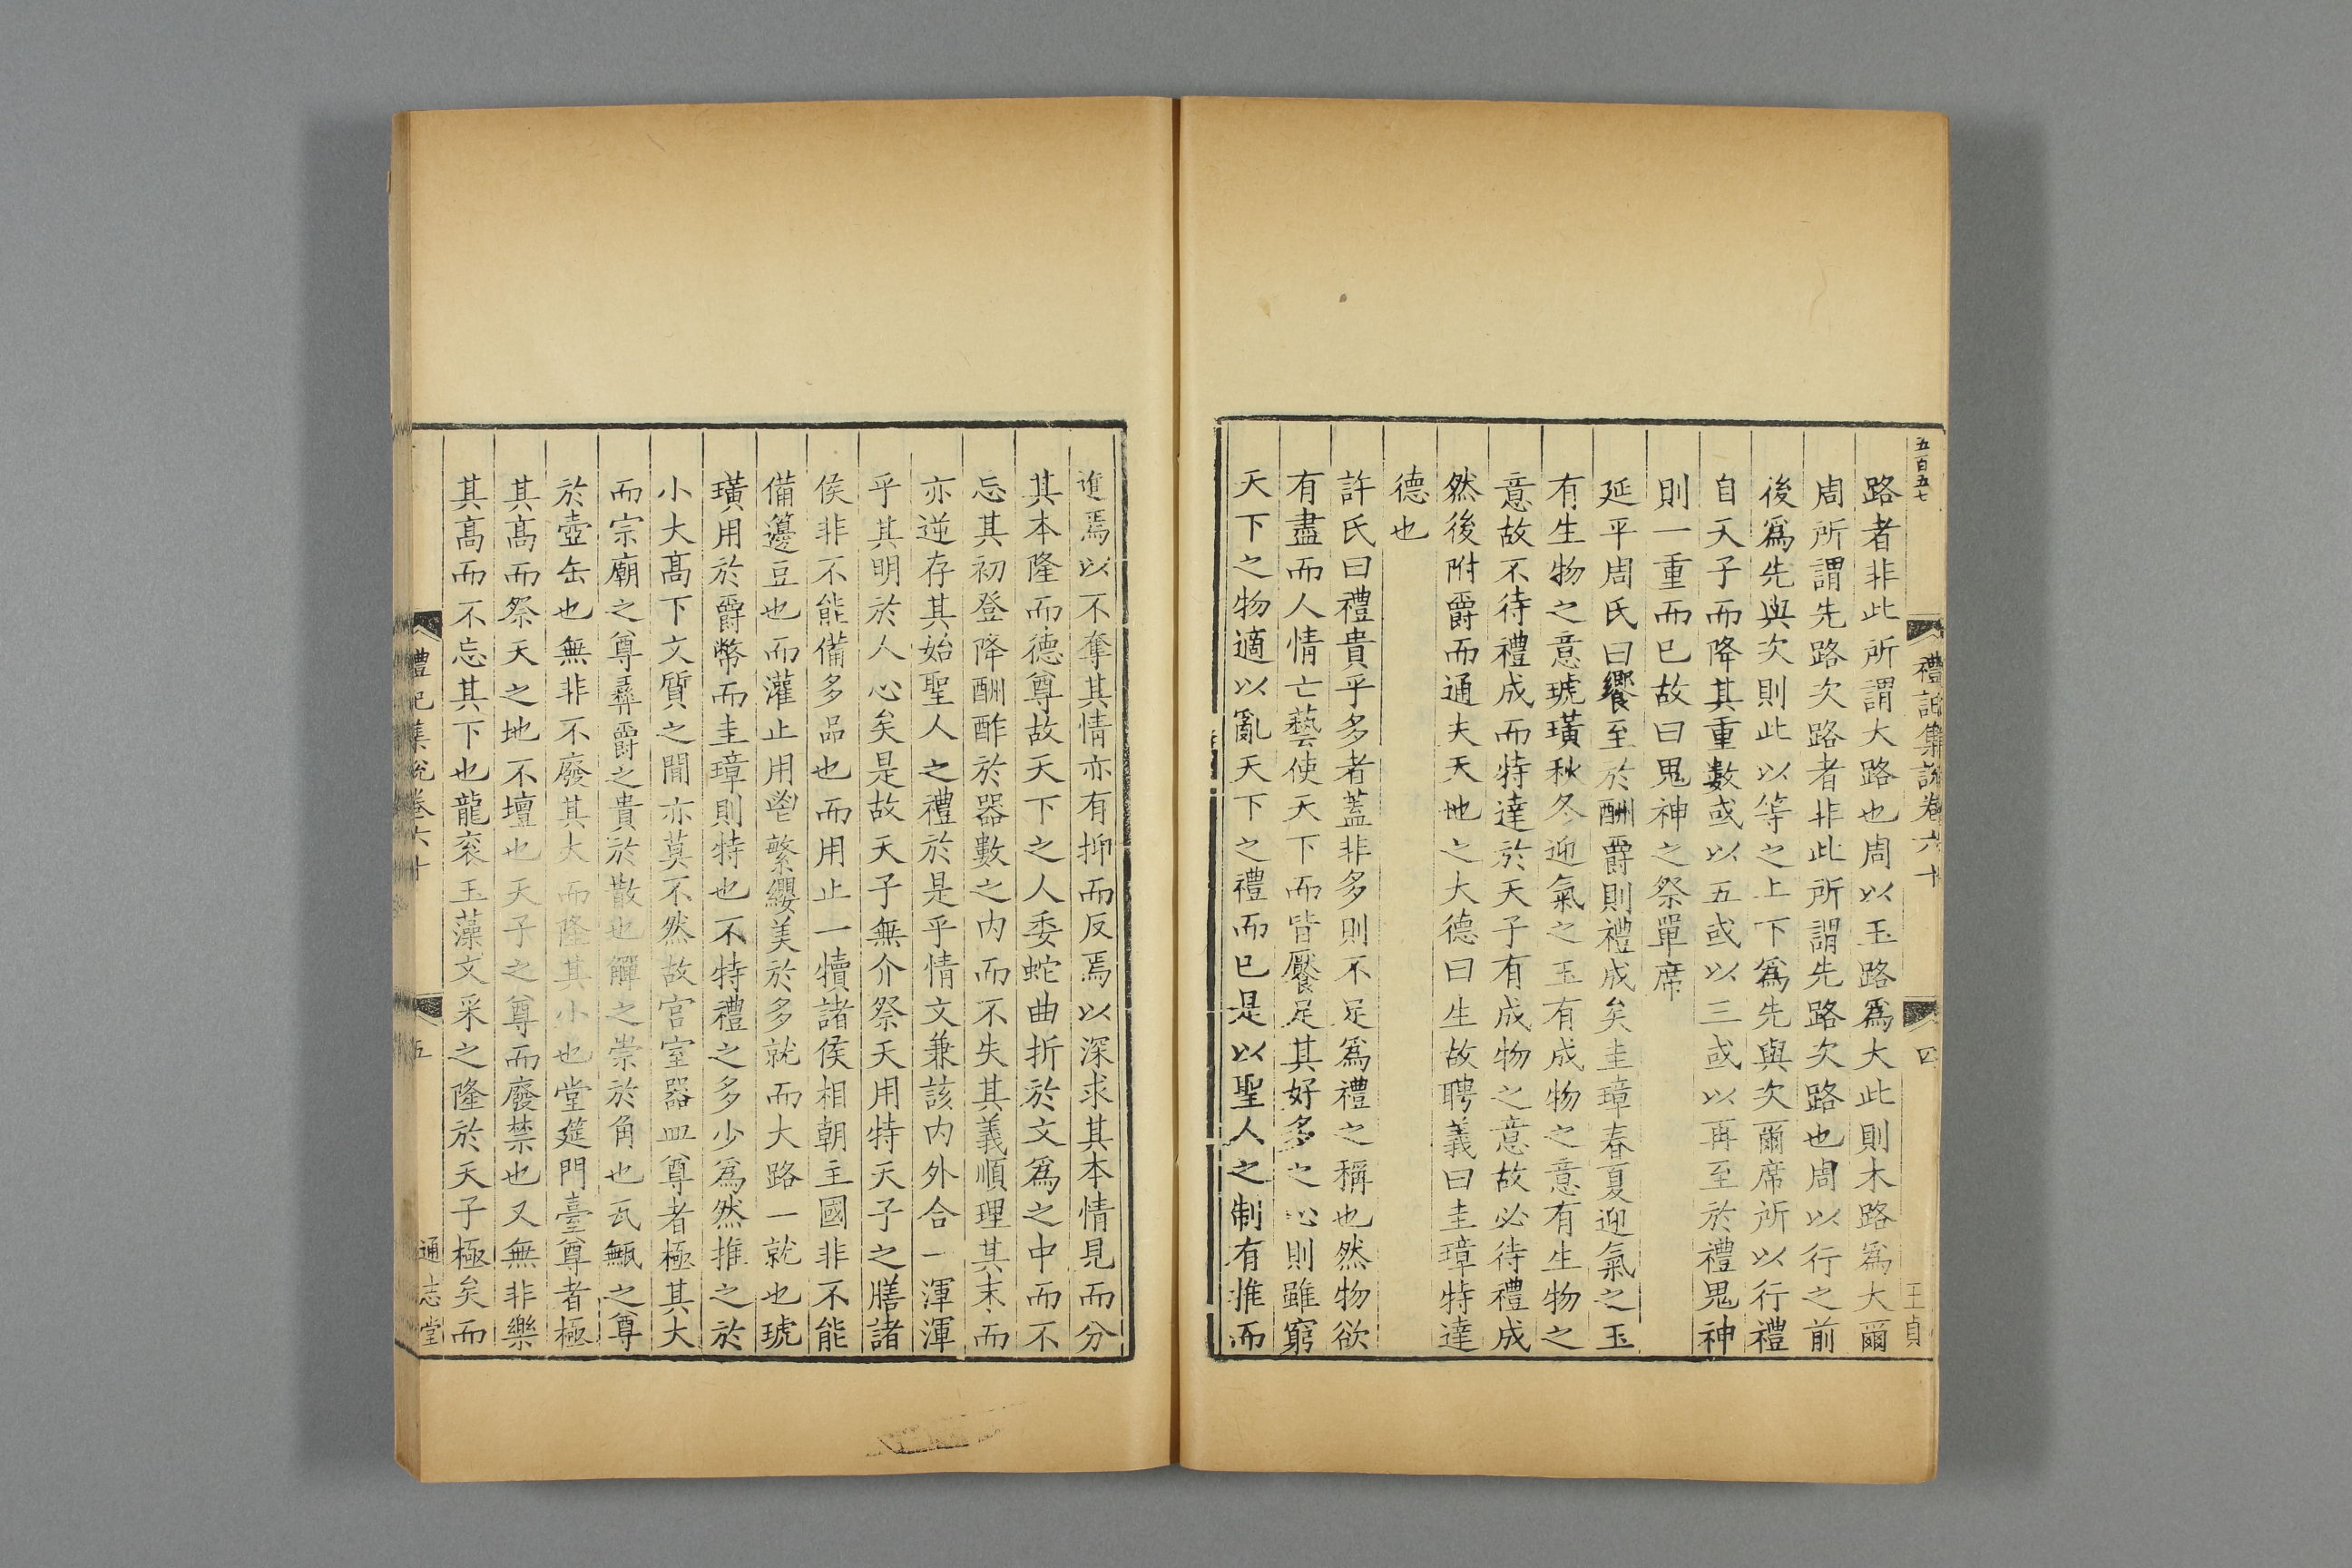 五百五七
禮記集說卷六十
四
王貞
路者非此所謂大路也周以玉路爲大此則木路爲大爾
周所謂先路次路者非此所謂先路次路也周以行之前
後爲先與次則此以等之上下爲先與次爾席所以行禮
自天子而降其重數或以五或以三或以再至於禮鬼神
則一重而已故曰鬼神之祭單席
延平周氏曰饗至於酬爵則禮成矣圭璋春夏迎氣之玉
有生物之意琥璜秋冬迎氣之玉有成物之意有生物之
意故不待禮成而特達於天子有成物之意故必待禮成
然後附爵而通夫天地之大德曰生故聘義曰圭璋特達
德也
許氏曰禮貴乎多者蓋非多則不足爲禮之稱也然物欲
有盡而人情亡藝使天下而皆饜足其好多之心則雖窮
天下之物適以亂天下之禮而已是以聖人之制有推而
進焉以不奪其情亦有抑而反焉以深求其本情見而分
其本隆而德尊故天下之人委蛇曲折於文爲之中而不
忘其初登降酬酢於器數之内而不失其義順理其末而
亦逆存其始聖人之禮於是乎情文兼該内外合一渾渾
乎其明於人心矣是故天子無介祭天用特天子之膳諸
侯非不能備多品也而用止一犢諸侯相朝主國非不能
備籩豆也而灌止用鬯繁纓美於多就而大路一就也琥
璜用於爵幣而圭璋則特也不特禮之多少爲然推之於
小大高下文質之閒亦莫不然故宮室器皿尊者極其大
而宗廟之尊彝爵之貴於散也觶之崇於角也瓦甒之尊
於壺缶也無非不廢其大而隆其小也堂筵門臺尊者極
其高而祭天之地不壇也天子之尊而廢禁也又無非樂
其高而不忘其下也龍衮玉藻文采之隆於天子極矣而
禮記集說卷六十
五
通志堂